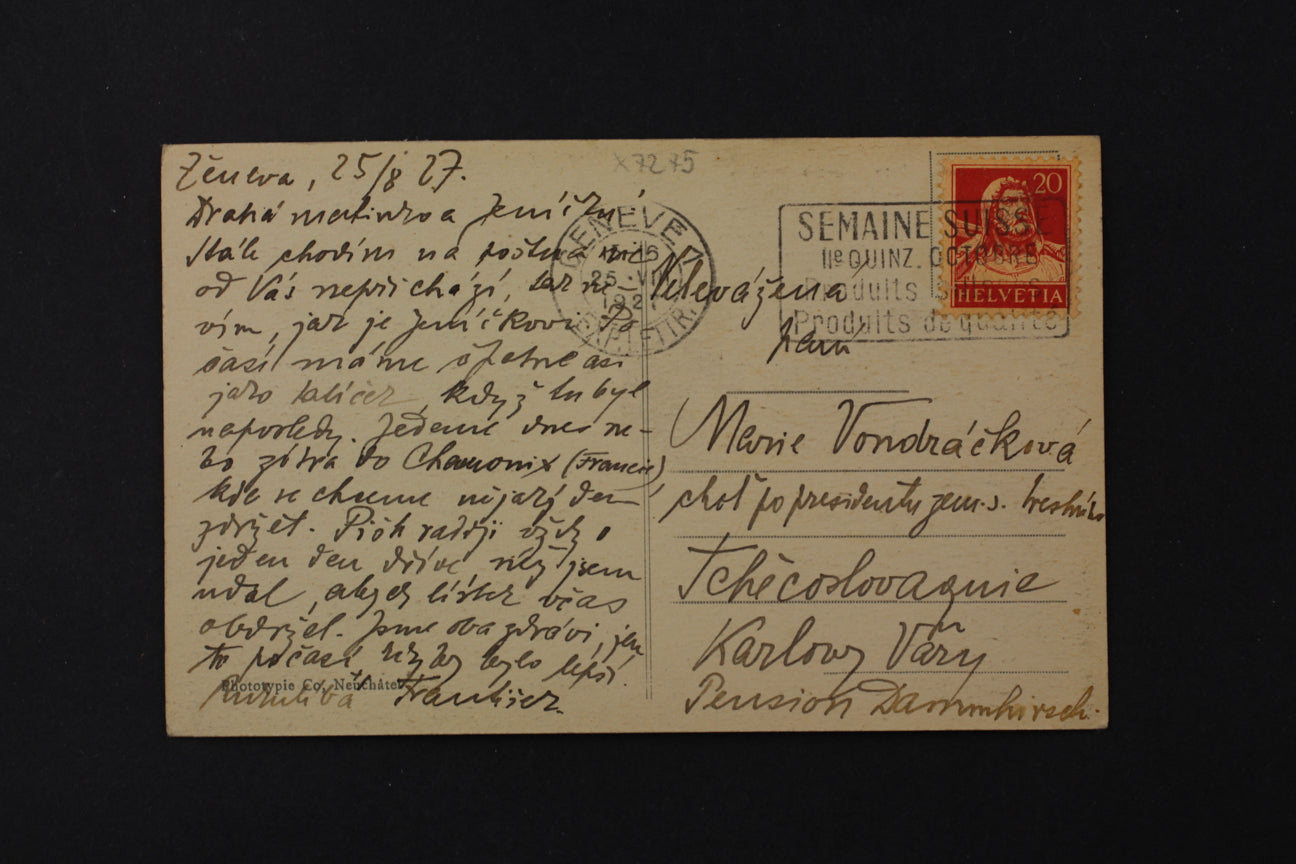 X7275
Ženeva, 25/8 27.
Drahá matinko a Jeníčku
Stále chodím na poštu a nic
od Vás nepřichází, tak ne-
vím, jak je Jeníčkovi. Po-
časí máme špatné asi
jako tatíček, když tu byl
naposledy. Jedeme dnes ne-
bo zítra do Chamonix (Francie)
kde se chceme nějaký den
zdržet. Pište raději vždy o
jeden den dříve, než jsem
udal, abych lístek včas
obdržel. Jsme oba zdrávi, jen
to počasí kdyby bylo lepší.
František.
Phototypie Co, Neuchâtel
GENEVE
25. VIII
SEMAINE SUISSE
IIe QUINZ. OCTOBRE
Produits suisses
Produits de qualité
20
HELVETIA
Velevážená
paní
Marie Vondráčková
choť po presidentu zem. s.
Tchécoslovaquie
Karlovy Váry
Pension Dammhirsch.